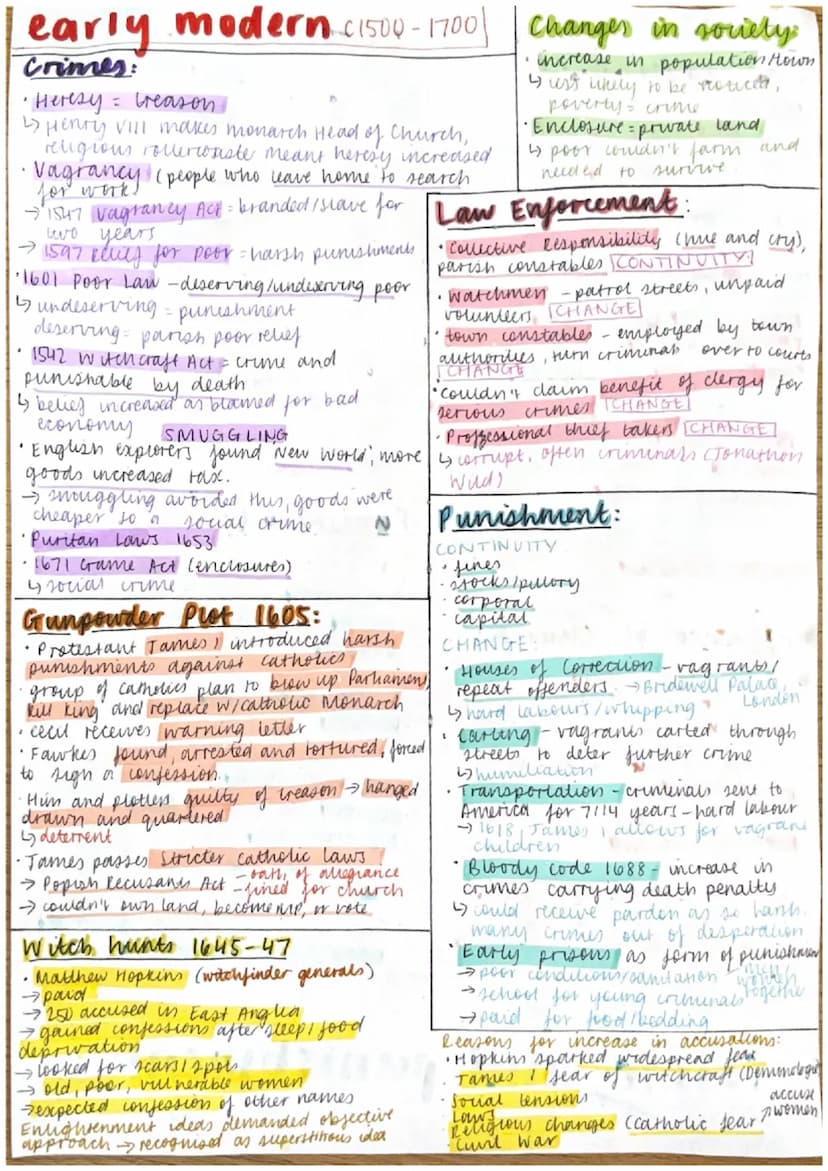 early modern c1500-1700
Crimes:
· Heresy = treason
↳ Henry VIII makes monarch Head of Church,
religious rollercoaster meant heresy increased
· Vagrancy (people who leave home to search
for work)
→ 1547 Vagrancy Act = branded/slave for
two years
→ 1597 Relief for Poor = harsh punishments
· 1601 Poor Law – deserving/undeserving poor
↳ undeserving = punishment
deserving = parish poor relief
· 1542 Witchcraft Act = crime and
punishable by death
↳ belief increased as blamed for bad
economy
SMUGGLING
· English explorers found New World, more
goods increased tax.
→ smuggling avoided this, goods were
cheaper so a social crime
· Puritan Laws 1653
· 1671 Game Act (enclosures)
↳ social crime
Changes in society:
· increase in population/town
↳ less likely to be noticed,
poverty = crime
· Enclosure = private land
↳ poor couldn't farm and
needed to survive
Law Enforcement:
· Collective Responsibility (hue and cry),
parish constables CONTINUITY
· Watchmen – patrol streets, unpaid
volunteers, CHANGE
· town constables – employed by town
authorities, turn criminals over to courts
CHANGE
· couldn't claim benefit of clergy for
serious crimes CHANGE
· Proffessional thief takers CHANGE
↳ corrupt, often criminals (Jonathon
Wild)
Punishment:
CONTINUITY
· fines
· stocks/pillory
· corporal
· capital
CHANGE:
· Houses of Correction – vagrants/
repeat offenders → Bridewell Palace,
London
↳ hard labours/whipping
· Carting – vagrants carted through
streets to deter further crime
↳ humiliation
· Transportation – criminals sent to
America for 7/14 years – hard labour
→ 1618, James 1 allows for vagrant
children
· Bloody Code 1688 – increase in
crimes carrying death penalty
↳ could receive pardon as so harsh.
many crimes out of desperation
· Early prisons as form of punishment
→ poor conditions/sanitation men women together
→ school for young criminals
→ paid for food/bedding
Gunpowder Plot 1605:
· Protestant James 1 introduced harsh
punishments against catholics
· group of catholics plan to blow up Parliament,
kill King and replace w/catholic Monarch
· Cecil receives warning letter
· Fawkes found, arrested and tortured, forced
to sign a confession.
· Him and plotters guilty of treason → hanged
drawn and quartered
↳ deterrent
· James passes stricter catholic laws
→ Popish Recusants Act – oath of allegiance
– fined for church
→ couldn't own land, become MP, or vote
Witch hunts 1645-47
· Matthew Hopkins (witchfinder generals)
→ paid
→ 250 accused in East Anglia
→ gained confessions after sleep/food
deprivation
→ looked for scars/spots
→ old, poor, vulnerable women
→ expected confession of other names
Enlightenment ideas demanded objective
approach → recognised as superstitious idea
Reasons for increase in accusations:
· Hopkins sparked widespread fear
· James 1 fear of witchcraft (Demonologie)
· Social tensions
· Laws
· Religious changes (catholic fear ↗ accuse women
· Civil War